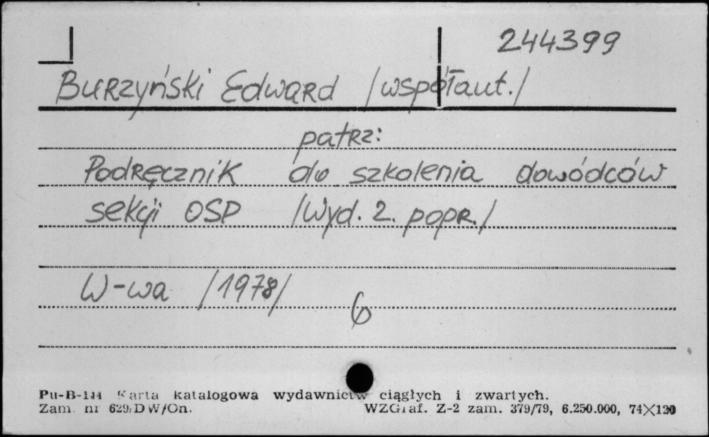 244399
Burzyński Edward /współaut./
patrz:
Podręcznik do szkolenia dowódców
sekcji OSP /Wyd. 2. popr./
W-wa /1978/
6
Pu-B-144 Karta katalogowa wydawnictw ciągłych i zwartych.
Zam. nr 629/DW/On. WZGraf. Z-2 zam. 379/79, 6.250.000, 74×120